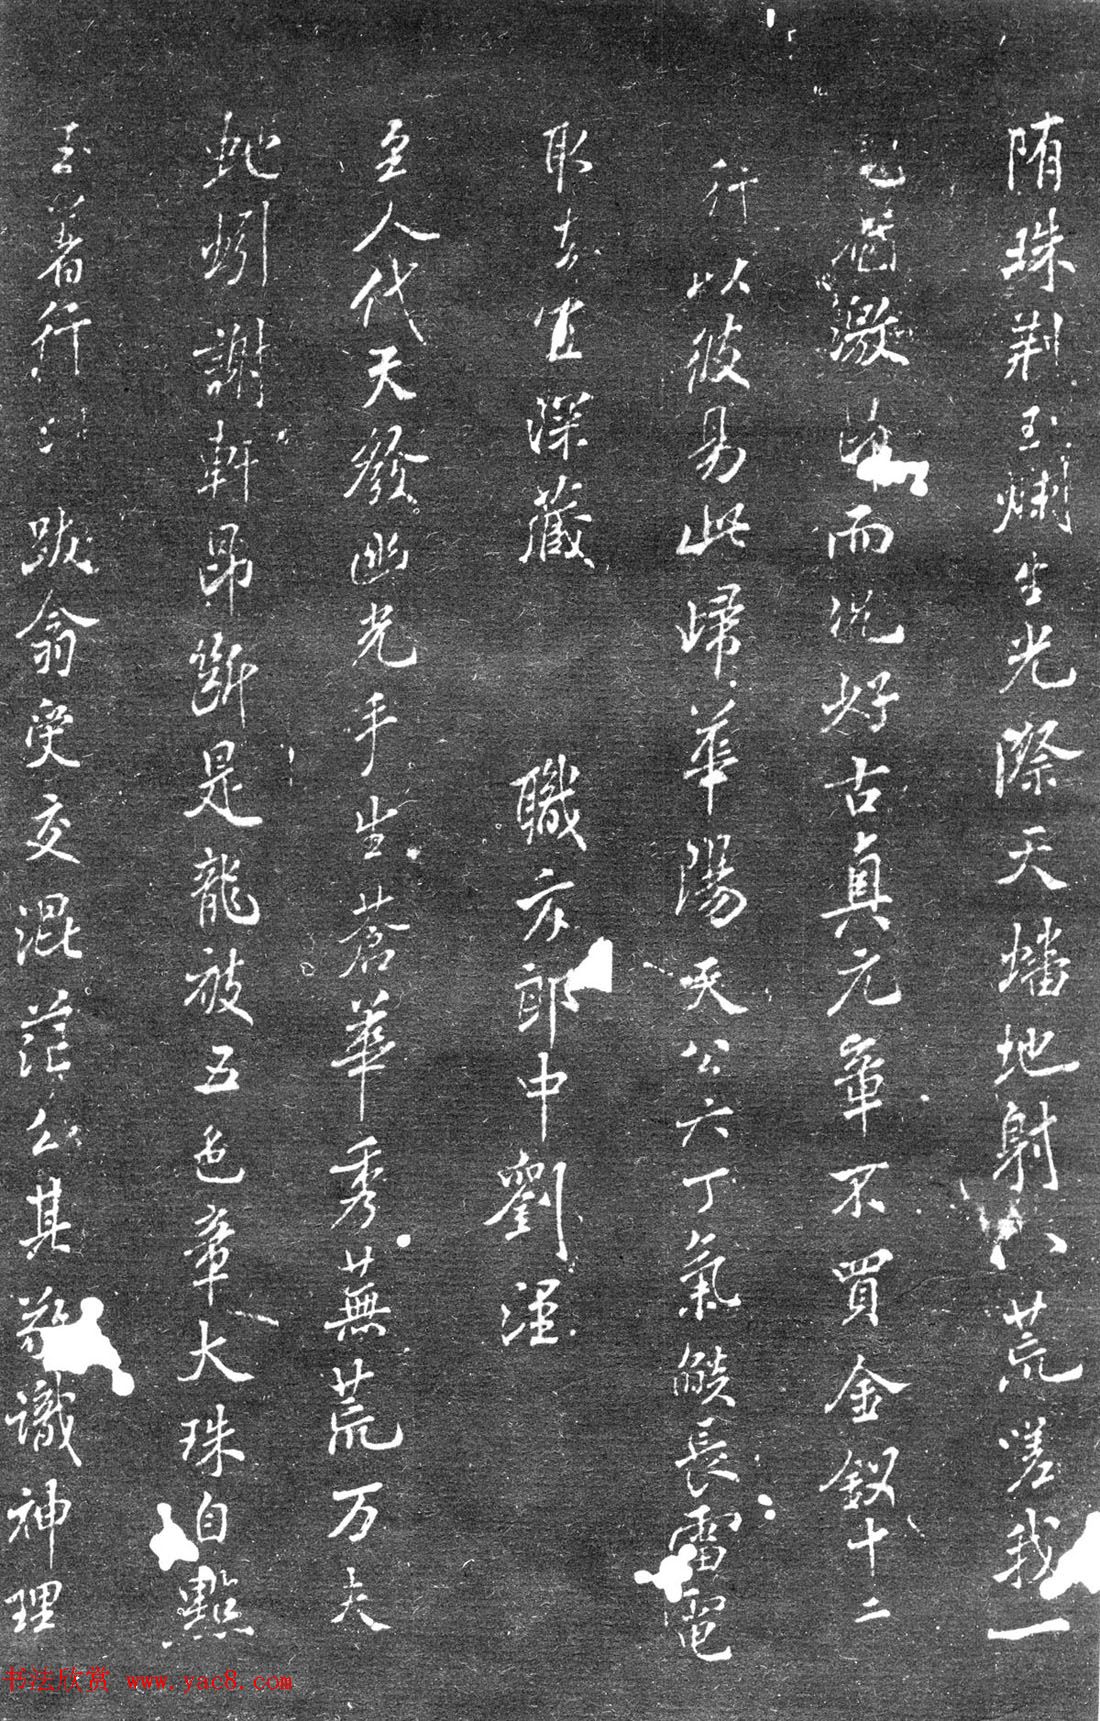 隋珠荆玉爛生光際天蟠地射六荒嗟我一
而況好古真元章不買金釵十二
行以彼易此歸華陽天公六丁氣燄長雷電
取去宜深藏 職方郎中劉涇
至人代天發幽光手生蒼華秀蕪荒万夫
蛇蚓謝軒昂斷是龍被五色章大珠自點
玉著行 跋翁受交混茫公其 識神理
书法欣赏 www.yac8.com